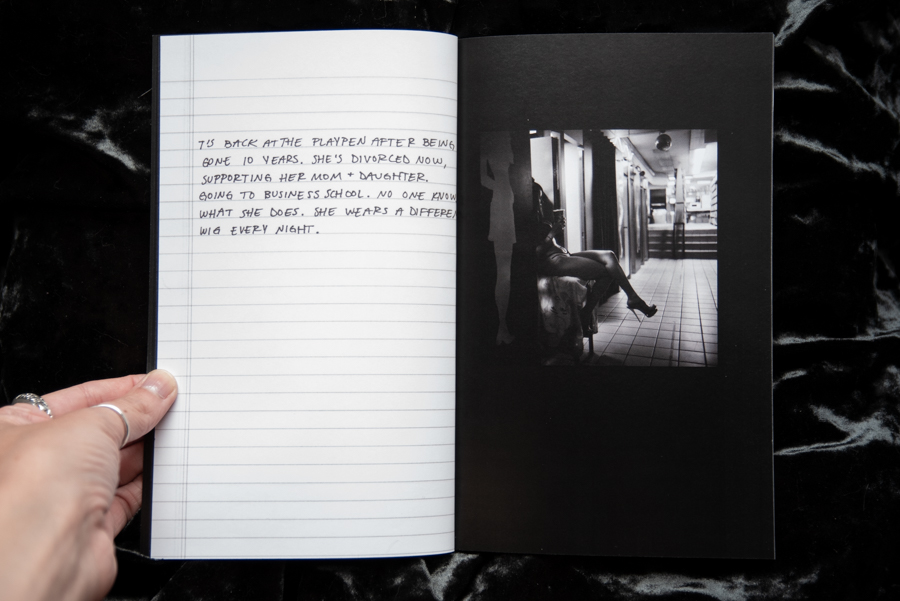 T'S BACK AT THE PLAYPEN AFTER BEING
GONE 10 YEARS. SHE'S DIVORCED NOW,
SUPPORTING HER MOM + DAUGHTER.
GOING TO BUSINESS SCHOOL. NO ONE KNOW
WHAT SHE DOES. SHE WEARS A DIFFEREN
WIG EVERY NIGHT.